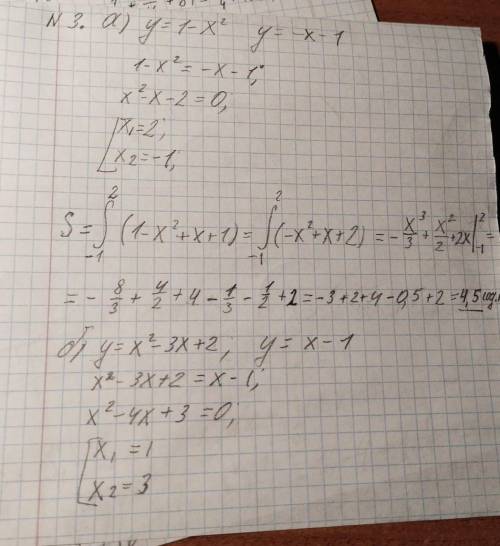 N 3. а) y = 1 - x² y = -x - 1
1 - x² = -x - 1;
x² - x - 2 = 0;
[x₁ = 2;
x₂ = -1;
S = ∫₋₁² (1 - x² + x + 1) = ∫₋₁² (-x² + x + 2) = - x³/3 + x²/2 + 2x |₋₁² =
= - 8/3 + 4/2 + 4 - 1/3 - 1/2 + 2 = -3 + 2 + 4 - 0,5 + 2 = 4,5
б) y = x² - 3x + 2; y = x - 1
x² - 3x + 2 = x - 1;
x² - 4x + 3 = 0;
[x₁ = 1
x₂ = 3